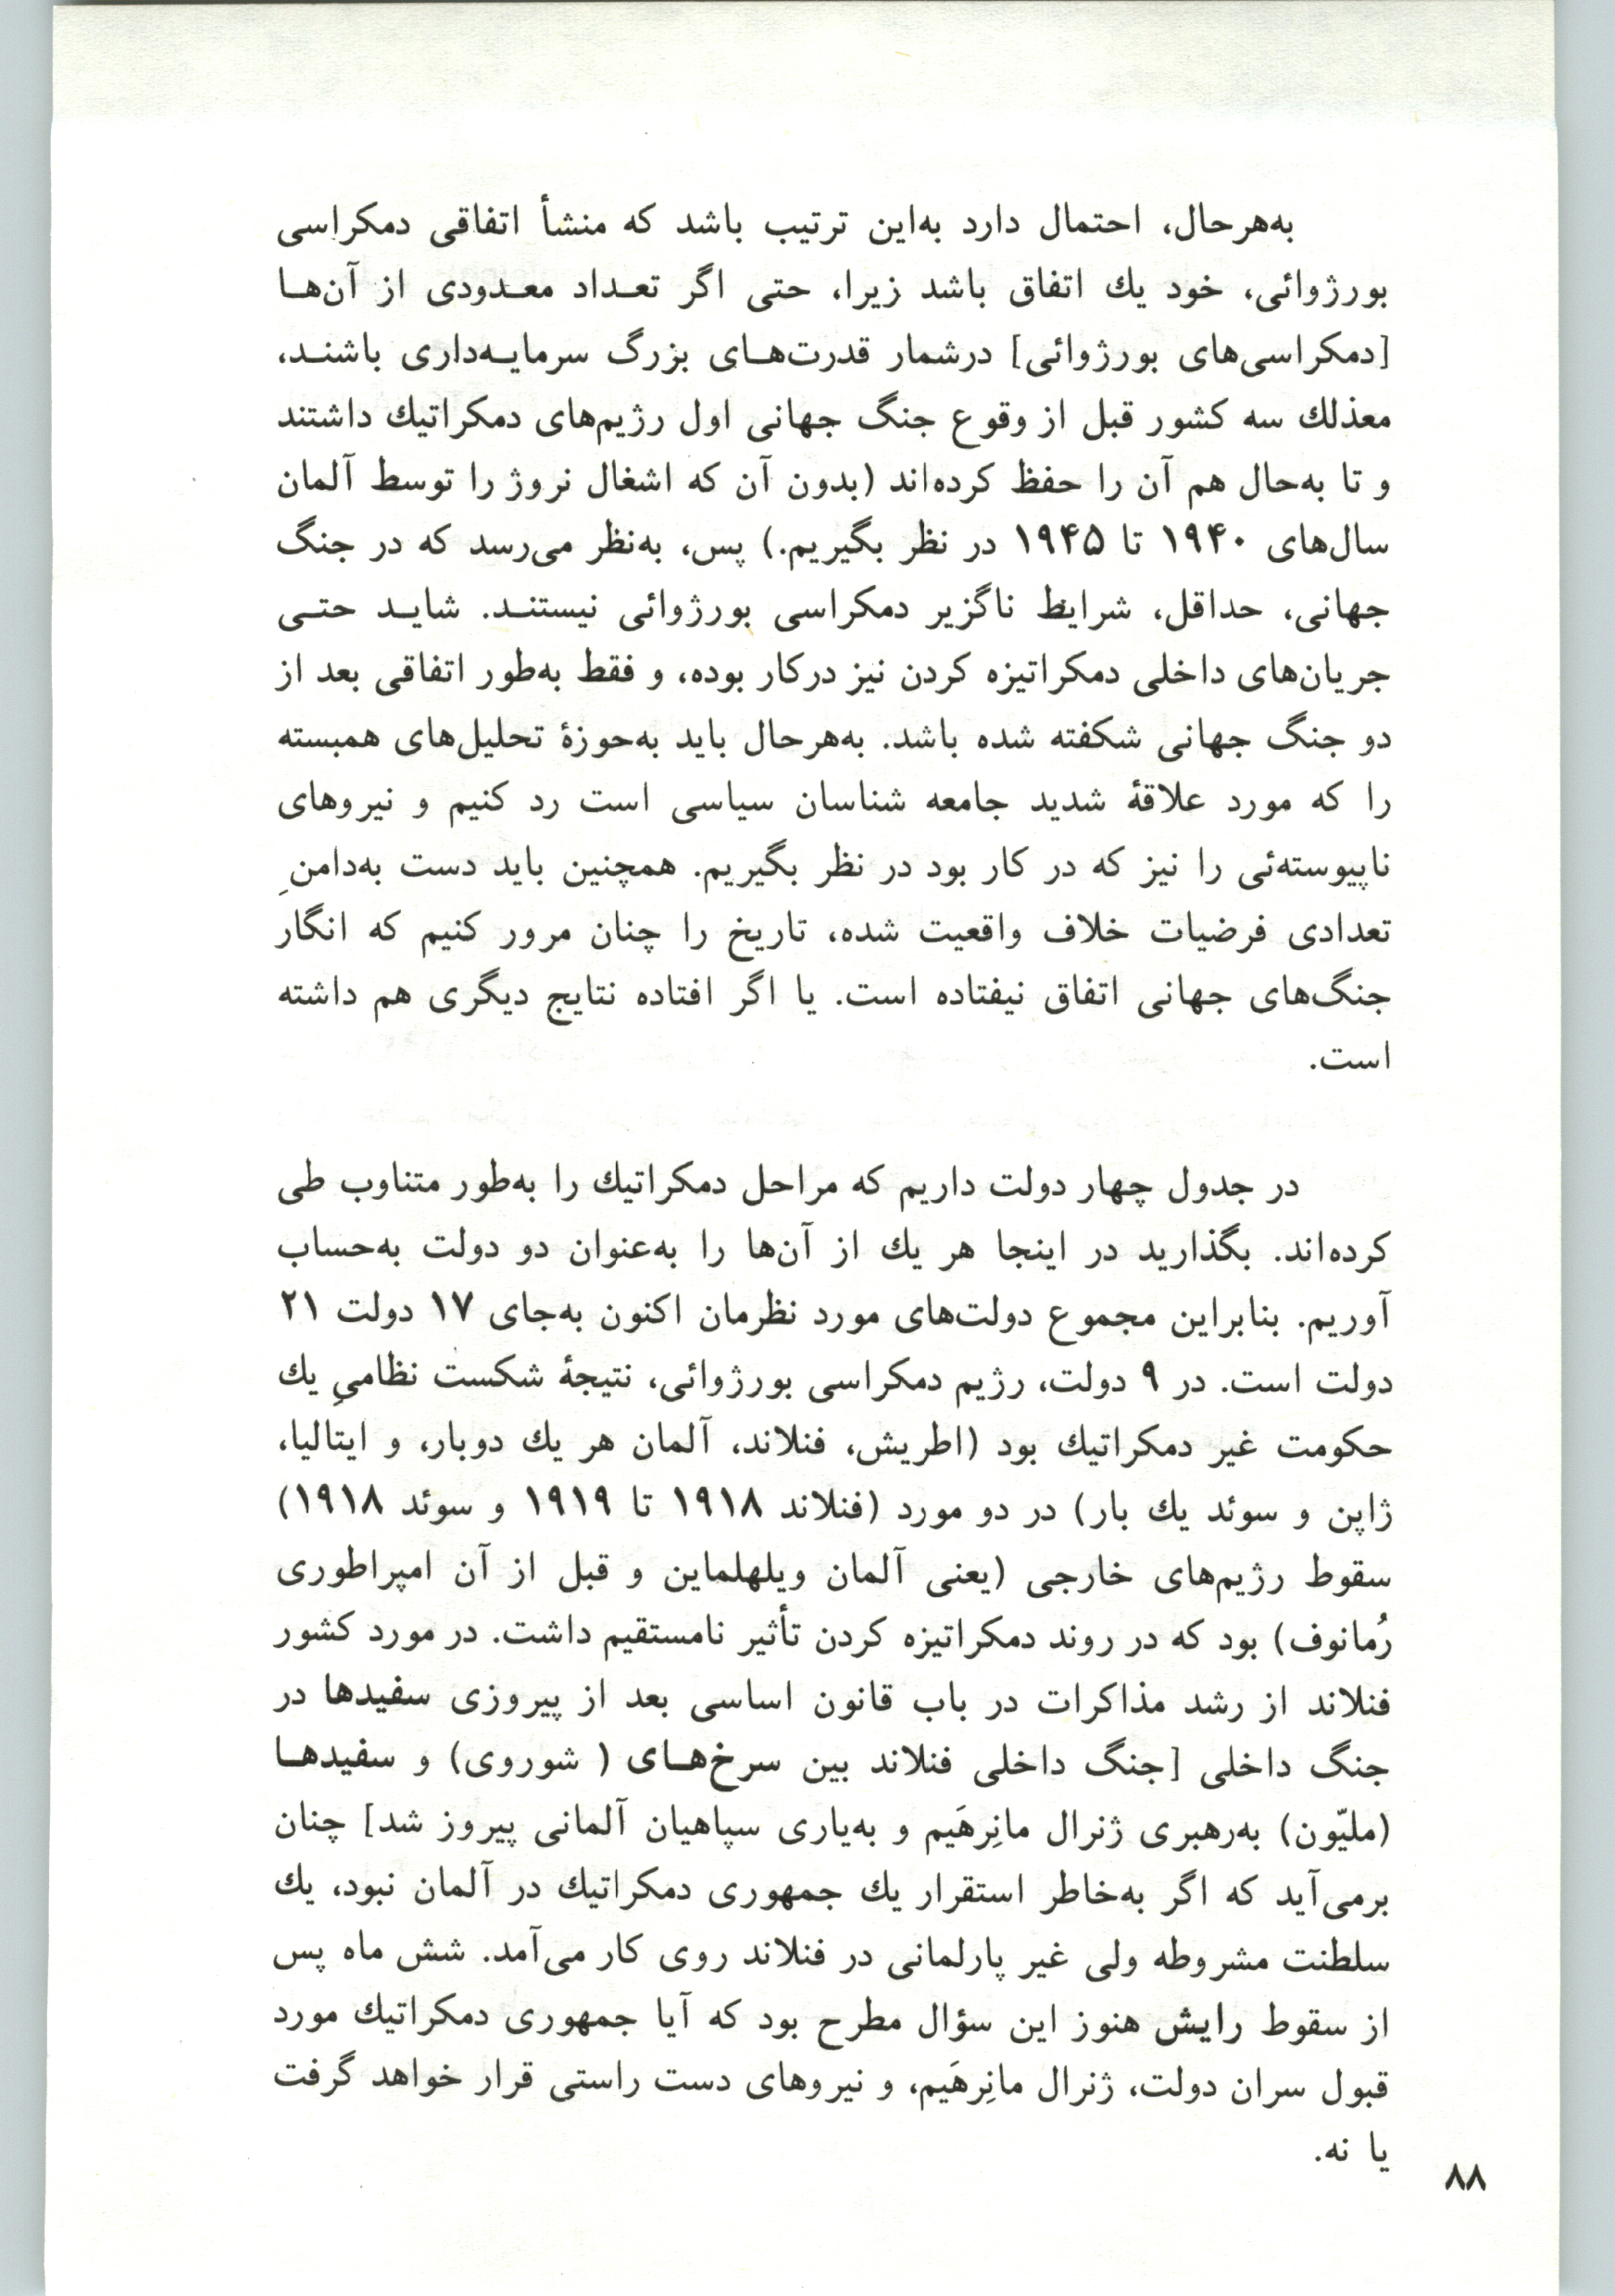 به‌هرحال، احتمال دارد به‌این ترتیب باشد که منشأ اتفاقی دمکراسی
بورژوائی، خود یك اتفاق باشد زیرا، حتی اگر تعـداد معـدودی از آن‌هـا
[دمکراسی‌های بورژوائی] درشمار قدرت‌هـای بزرگ سرمایـه‌داری باشنـد،
معذلك سه کشور قبل از وقوع جنگ جهانی اول رژیم‌های دمکراتیك داشتند
و تا به‌حال هم آن را حفظ کرده‌اند (بدون آن که اشغال نروژ را توسط آلمان
سال‌های ۱۹۴۰ تا ۱۹۴۵ در نظر بگیریم.) پس، به‌نظر می‌رسد که در جنگ
جهانی، حداقل، شرایط ناگزیر دمکراسی بورژوائی نیستنـد. شایـد حتـی
جریان‌های داخلی دمکراتیزه کردن نیز درکار بوده، و فقط به‌طور اتفاقی بعد از
دو جنگ جهانی شکفته شده باشد. به‌هرحال باید به‌حوزهٔ تحلیل‌های همبسته
را که مورد علاقهٔ شدید جامعه شناسان سیاسی است رد کنیم و نیروهای
ناپیوسته‌ئی را نیز که در کار بود در نظر بگیریم. همچنین باید دست به‌دامنِ
تعدادی فرضیات خلاف واقعیت شده، تاریخ را چنان مرور کنیم که انگار
جنگ‌های جهانی اتفاق نیفتاده است. یا اگر افتاده نتایج دیگری هم داشته
است.
در جدول چهار دولت داریم که مراحل دمکراتیك را به‌طور متناوب طی
کرده‌اند. بگذارید در اینجا هر یك از آن‌ها را به‌عنوان دو دولت به‌حساب
آوریم. بنابراین مجموع دولت‌های مورد نظرمان اکنون به‌جای ۱۷ دولت ۲۱
دولت است. در ۹ دولت، رژیم دمکراسی بورژوائی، نتیجهٔ شکست نظامیِ یك
حکومت غیر دمکراتیك بود (اطریش، فنلاند، آلمان هر یك دوبار، و ایتالیا،
ژاپن و سوئد یك بار) در دو مورد (فنلاند ۱۹۱۸ تا ۱۹۱۹ و سوئد ۱۹۱۸)
سقوط رژیم‌های خارجی (یعنی آلمان ویلهلماین و قبل از آن امپراطوری
رُمانوف) بود که در روند دمکراتیزه کردن تأثیر نامستقیم داشت. در مورد کشور
فنلاند از رشد مذاکرات در باب قانون اساسی بعد از پیروزی سفیدها در
جنگ داخلی [جنگ داخلی فنلاند بین سرخ‌هـای ( شوروی) و سفیدهـا
(ملیّون) به‌رهبری ژنرال مانِرهَیم و به‌یاری سپاهیان آلمانی پیروز شد] چنان
برمی‌آید که اگر به‌خاطر استقرار یك جمهوری دمکراتیك در آلمان نبود، یك
سلطنت مشروطه ولی غیر پارلمانی در فنلاند روی کار می‌آمد. شش ماه پس
از سقوط رایش هنوز این سؤال مطرح بود که آیا جمهوری دمکراتیك مورد
قبول سران دولت، ژنرال مانِرهَیم، و نیروهای دست راستی قرار خواهد گرفت
یا نه.
۸۸